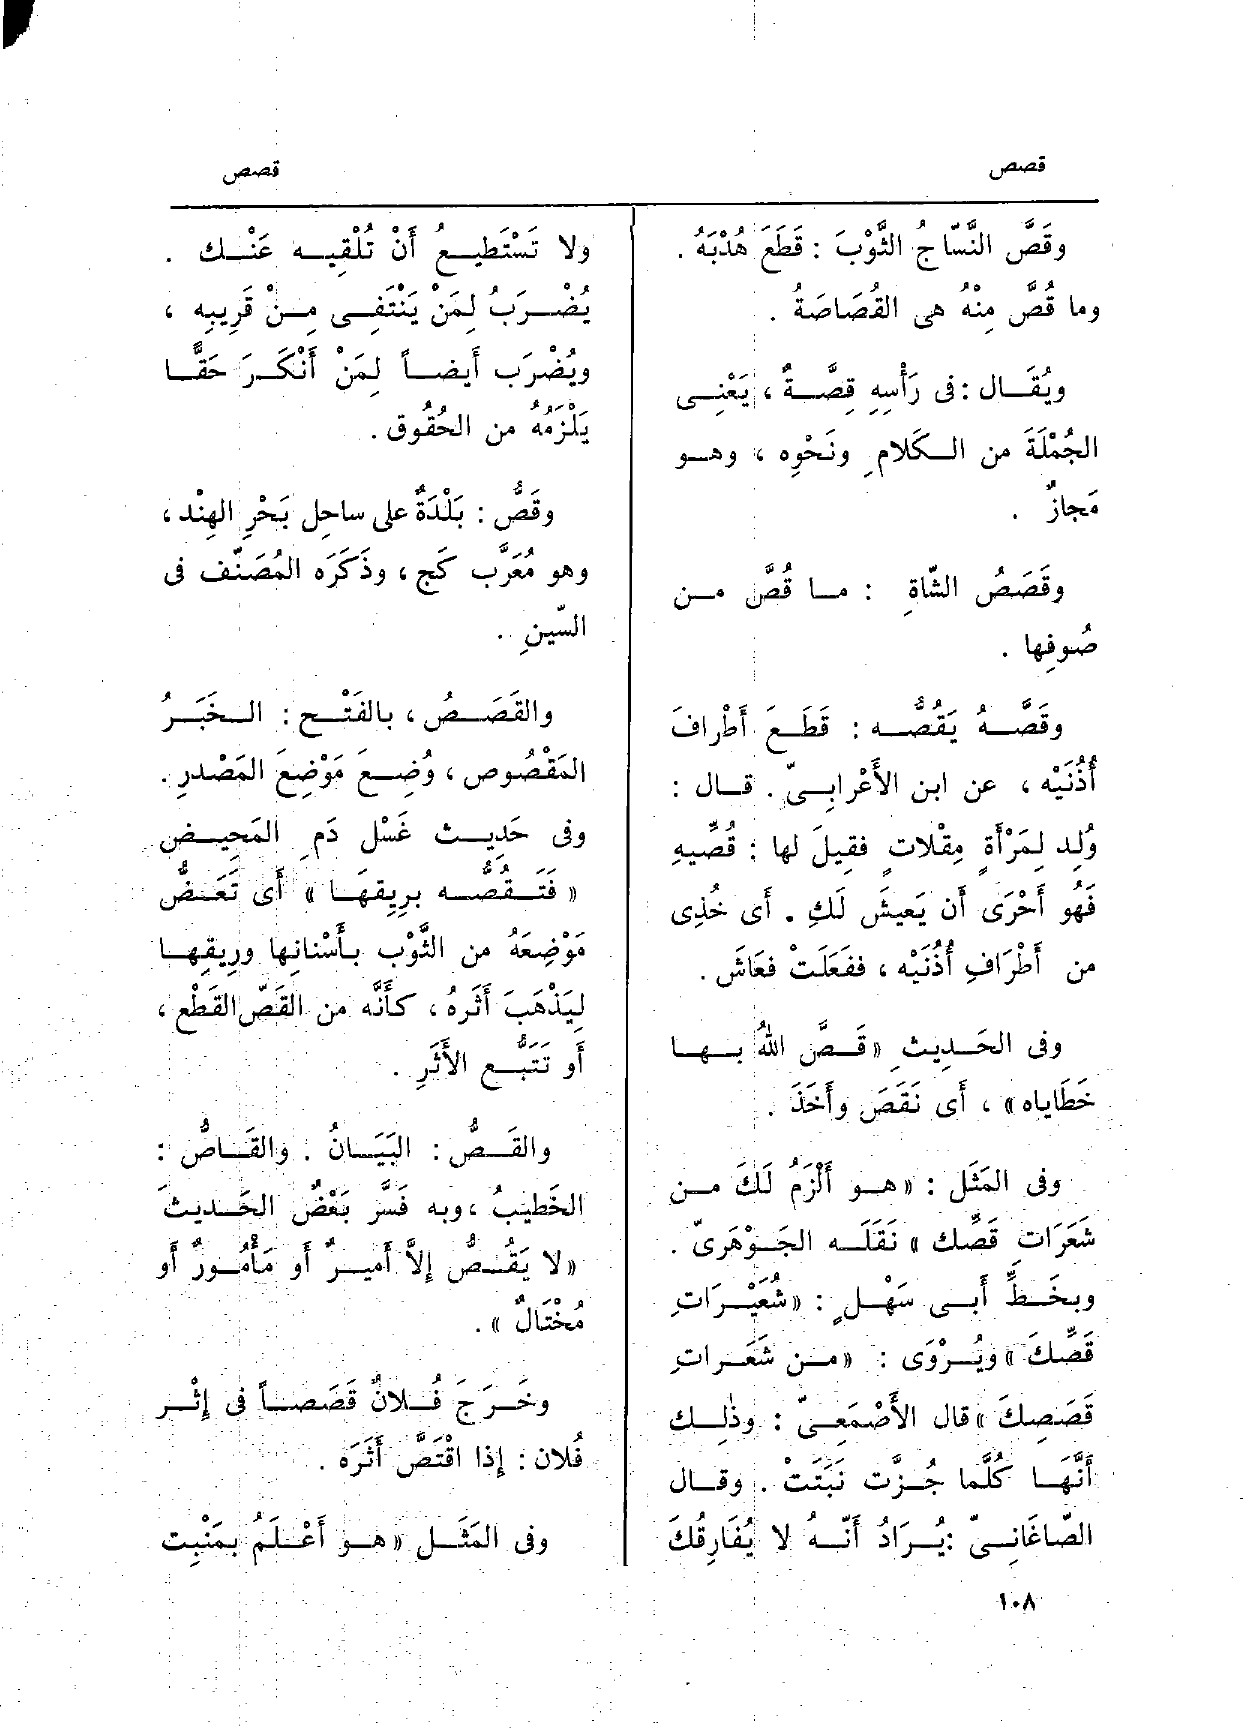 قصص
قصص
وقَصَّ النَّسّاجُ الثَّوْبَ : قَطَعَ هُدْبَهُ .
وما قُصَّ مِنْهُ هى القُصَاصَةُ .
ويُقَال : فى رَأْسِهِ قِصَّةٌ ، يَعْنِى
الجُمْلَةَ من الكَلامِ ونَحْوِه ، وهو
مَجازٌ .
وقَصَصُ الشّاةِ : ما قُصَّ من
صُوفِها .
وقَصَّهُ يَقُصُّه : قَطَعَ أَطْرافَ
أُذُنَيْه ، عن ابن الأَعْرابِىّ . قال :
وُلِد لِمَرْأَةٍ مِقْلاتٍ فقِيلَ لها : قُصِّيهِ
فَهُو أَحْرَى أَن يَعِيشَ لَكِ . أَى خُذِى
من أَطْرَافِ أُذُنَيْه ، ففَعَلَتْ فعَاشَ .
وفى الحَدِيثِ «قَصَّ اللهُ بها
خَطَاياه» ، أَى نَقَصَ وأَخَذَ .
وفى المَثَل : «هو أَلْزَمُ لَكَ من
شَعَرَاتِ قَصِّك » نَقَلَه الجَوْهَرىّ .
وبخَطِّ أَبى سَهْلٍ : «شُعَيْرَاتِ
قَصِّكَ » ويُرْوَى : «من شَعَراتِ
قَصَصِكَ » قال الأَصْمَعىّ : وذٰلِك
أَنَّهَا كُلَّما جُزَّت نَبَتَتْ . وقال
الصّاغَانِىّ : يُرَادُ أَنَّهُ لا يُفَارِقُكَ
ولا تَسْتَطِيعُ أَنْ تُلْقِيَه عَنْك .
يُضْرَبُ لِمَنْ يَنْتَفِى مِنْ قَرِيبِه ،
ويُضْرَب أَيضاً لِمَنْ أَنْكَرَ حَقًّا
يَلْزَمُهُ من الحُقُوق .
وقَصُّ : بَلْدَةٌ على ساحِل بَحْرِ الهِنْد ،
وهو مُعَرَّب كَج ، وذَكَرَه المُصَنّف فى
السِّينِ .
والقَصَصُ ، بالفَتْح : الخَبَرُ
المَقْصُوص ، وُضِعَ مَوْضِعَ المَصْدرِ .
وفى حَدِيث غَسْل دَمِ المَحِيض
« فَتَقُصُّه بِرِيقِهَا » أَى تَعَضُّ
مَوْضِعَهُ من الثَّوْب بأَسْنانِها ورِيقِها
لِيَذْهَبَ أَثَرهُ ، كأَنَّه من القَصّ القَطْع ،
أَو تَتَبُّع الأَثَرِ .
والقَصُّ : البَيَانُ . والقَاصُّ :
الخَطِيبُ ، وبه فَسَّرَ بَعْضٌ الحَدِيثَ
« لا يَقُصُّ إِلاَّ أَمِيرٌ أَو مَأْمُورٌ أَو
مُخْتَالٌ » .
وخَرَجَ فُلانٌ قَصَصاً فى إِثْرِ
فُلان : إِذا اقْتَصَّ أَثَرَه .
وفى المَثَل « هو أَعْلَمُ بمَنْبِت
١٠٨